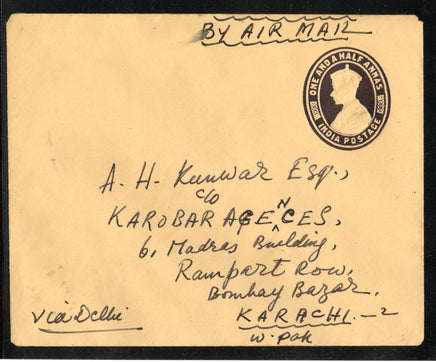 BY AIR MAIL
ONE AND A HALF ANNAS
INDIA POSTAGE
A. H. Kunwar Esq.,
c/o
KAROBAR AGENCES,
6, Madras Building,
Rampart Row,
Bombay Bazar.
Via Delhi
KARACHI.-2
W. Pak